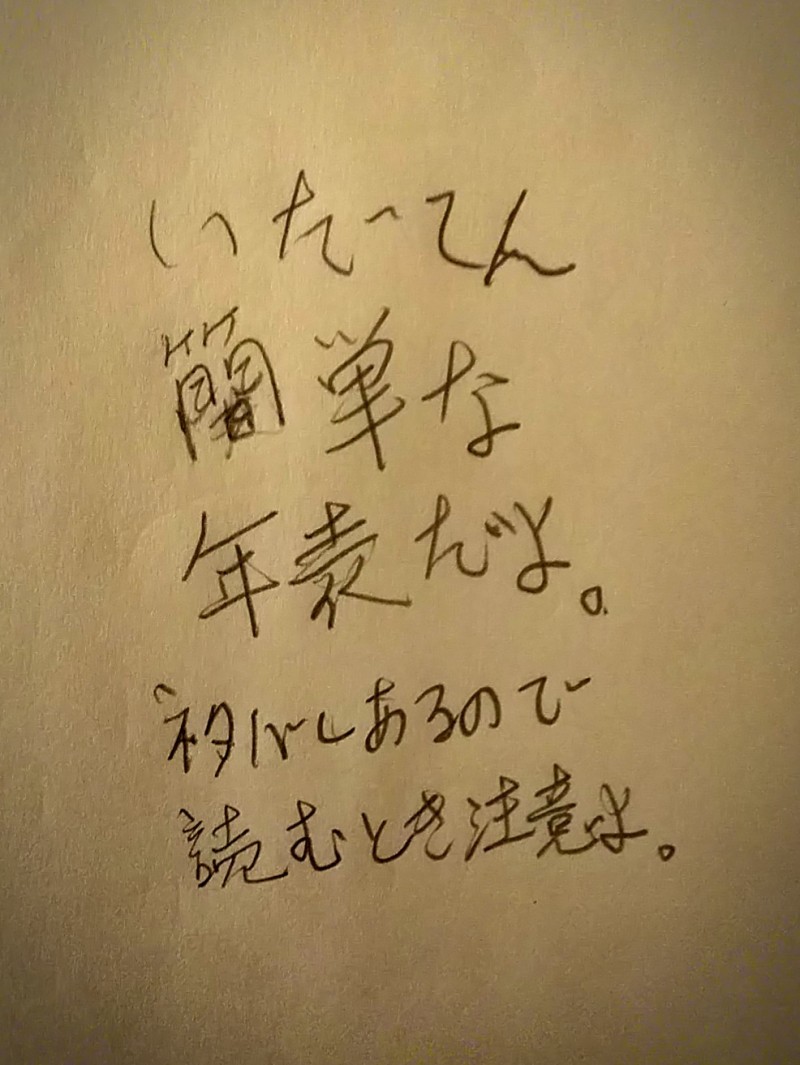 いだてん
簡単な
年表だよ。
ネタバレあるので
読むとき注意よ。